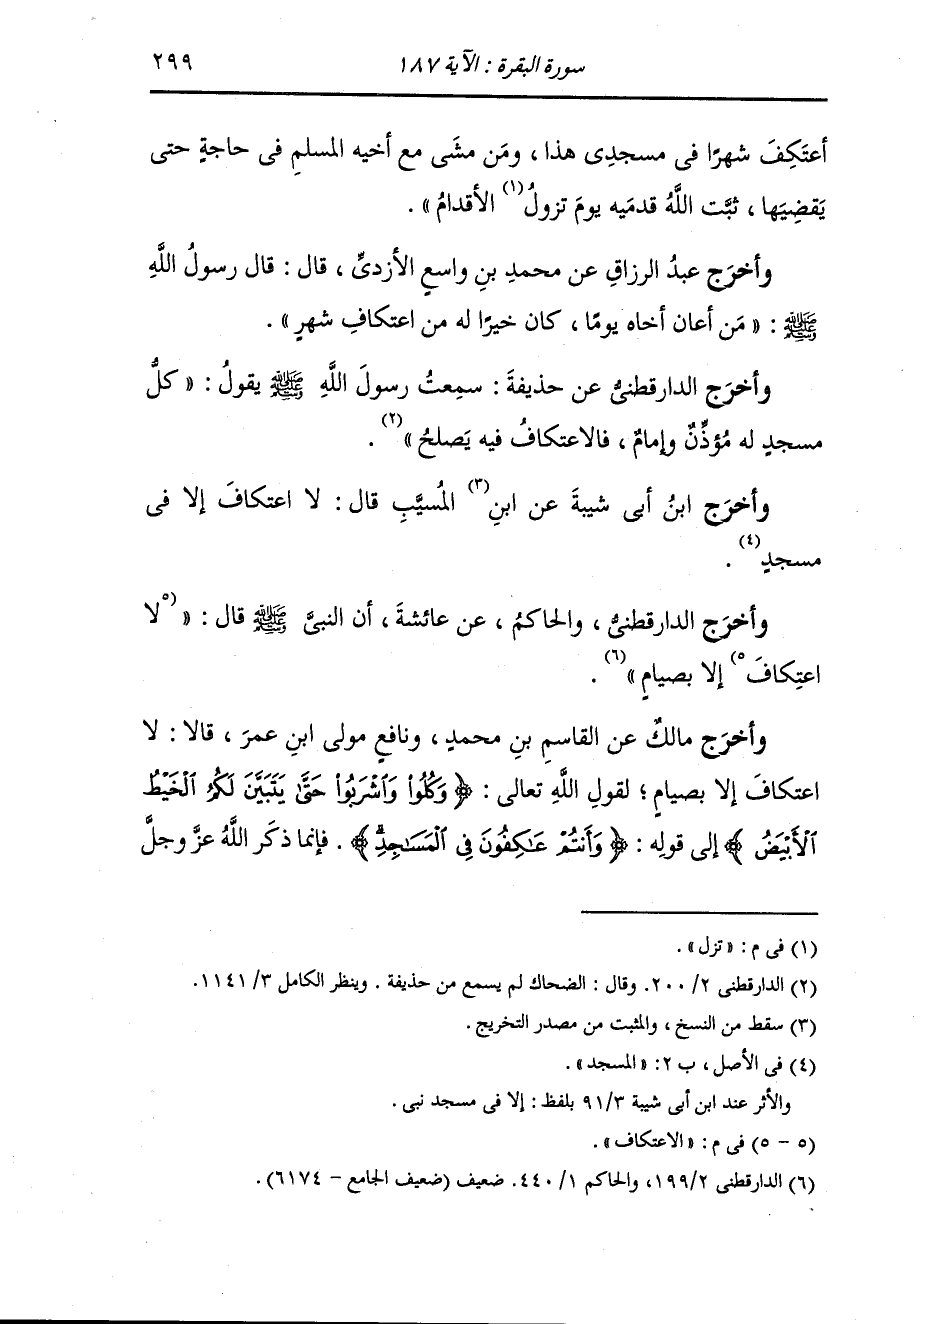 سورة البقرة : الآية ١٨٧ ٢٩٩
أعتَكِفَ شهرًا فى مسجدِى هذا ، ومَن مشَى مع أخيه المسلمِ فى حاجةٍ حتى
يَقضِيَها ، ثبَّت اللَّهُ قدمَيه يومَ تزولُ(١) الأقدامُ» .
وأخرَج عبدُ الرزاقِ عن محمدِ بنِ واسعٍ الأزدىِّ ، قال : قال رسولُ اللَّهِ
ﷺ : « مَن أعان أخاه يومًا ، كان خيرًا له من اعتكافِ شهرٍ» .
وأخرَج الدارقطنىُّ عن حذيفةَ : سمِعتُ رسولَ اللَّهِ ﷺ يقولُ : « كلُّ
مسجدٍ له مُؤذِّنٌ وإمامٌ ، فالاعتكافُ فيه يَصلحُ»(٢) .
وأخرَج ابنُ أبى شيبةَ عن ابنِ(٣) المُسيَّبِ قال : لا اعتكافَ إلا فى
مسجدٍ(٤) .
وأخرَج الدارقطنىُّ ، والحاكمُ ، عن عائشةَ ، أن النبىَّ ﷺ قال : « (٥لا
اعتِكافَ٥) إلا بصيامٍ»(٦) .
وأخرَج مالكٌ عن القاسمِ بنِ محمدٍ ، ونافعٍ مولى ابنِ عمرَ ، قالا : لا
اعتكافَ إلا بصيامٍ ؛ لقولِ اللَّهِ تعالى : ﴿ وَكُلُوا۟ وَٱشْرَبُوا۟ حَتَّىٰ يَتَبَيَّنَ لَكُمُ ٱلْخَيْطُ
ٱلْأَبْيَضُ ﴾ إلى قولِه : ﴿ وَأَنتُمْ عَـٰكِفُونَ فِى ٱلْمَسَـٰجِدِۗ ﴾ . فإنما ذكَر اللَّهُ عزَّ وجلَّ
(١) فى م : «تزل» .
(٢) الدارقطنى ٢/ ٢٠٠. وقال : الضحاك لم يسمع من حذيفة . وينظر الكامل ٣/ ١١٤١.
(٣) سقط من النسخ ، والمثبت من مصدر التخريج .
(٤) فى الأصل ، ب ٢: «المسجد» .
والأثر عند ابن أبى شيبة ٩١/٣ بلفظ : إلا فى مسجد نبى .
(٥ - ٥) فى م : «الاعتكاف» .
(٦) الدارقطنى ١٩٩/٢، والحاكم ١/ ٤٤٠. ضعيف (ضعيف الجامع - ٦١٧٤) .